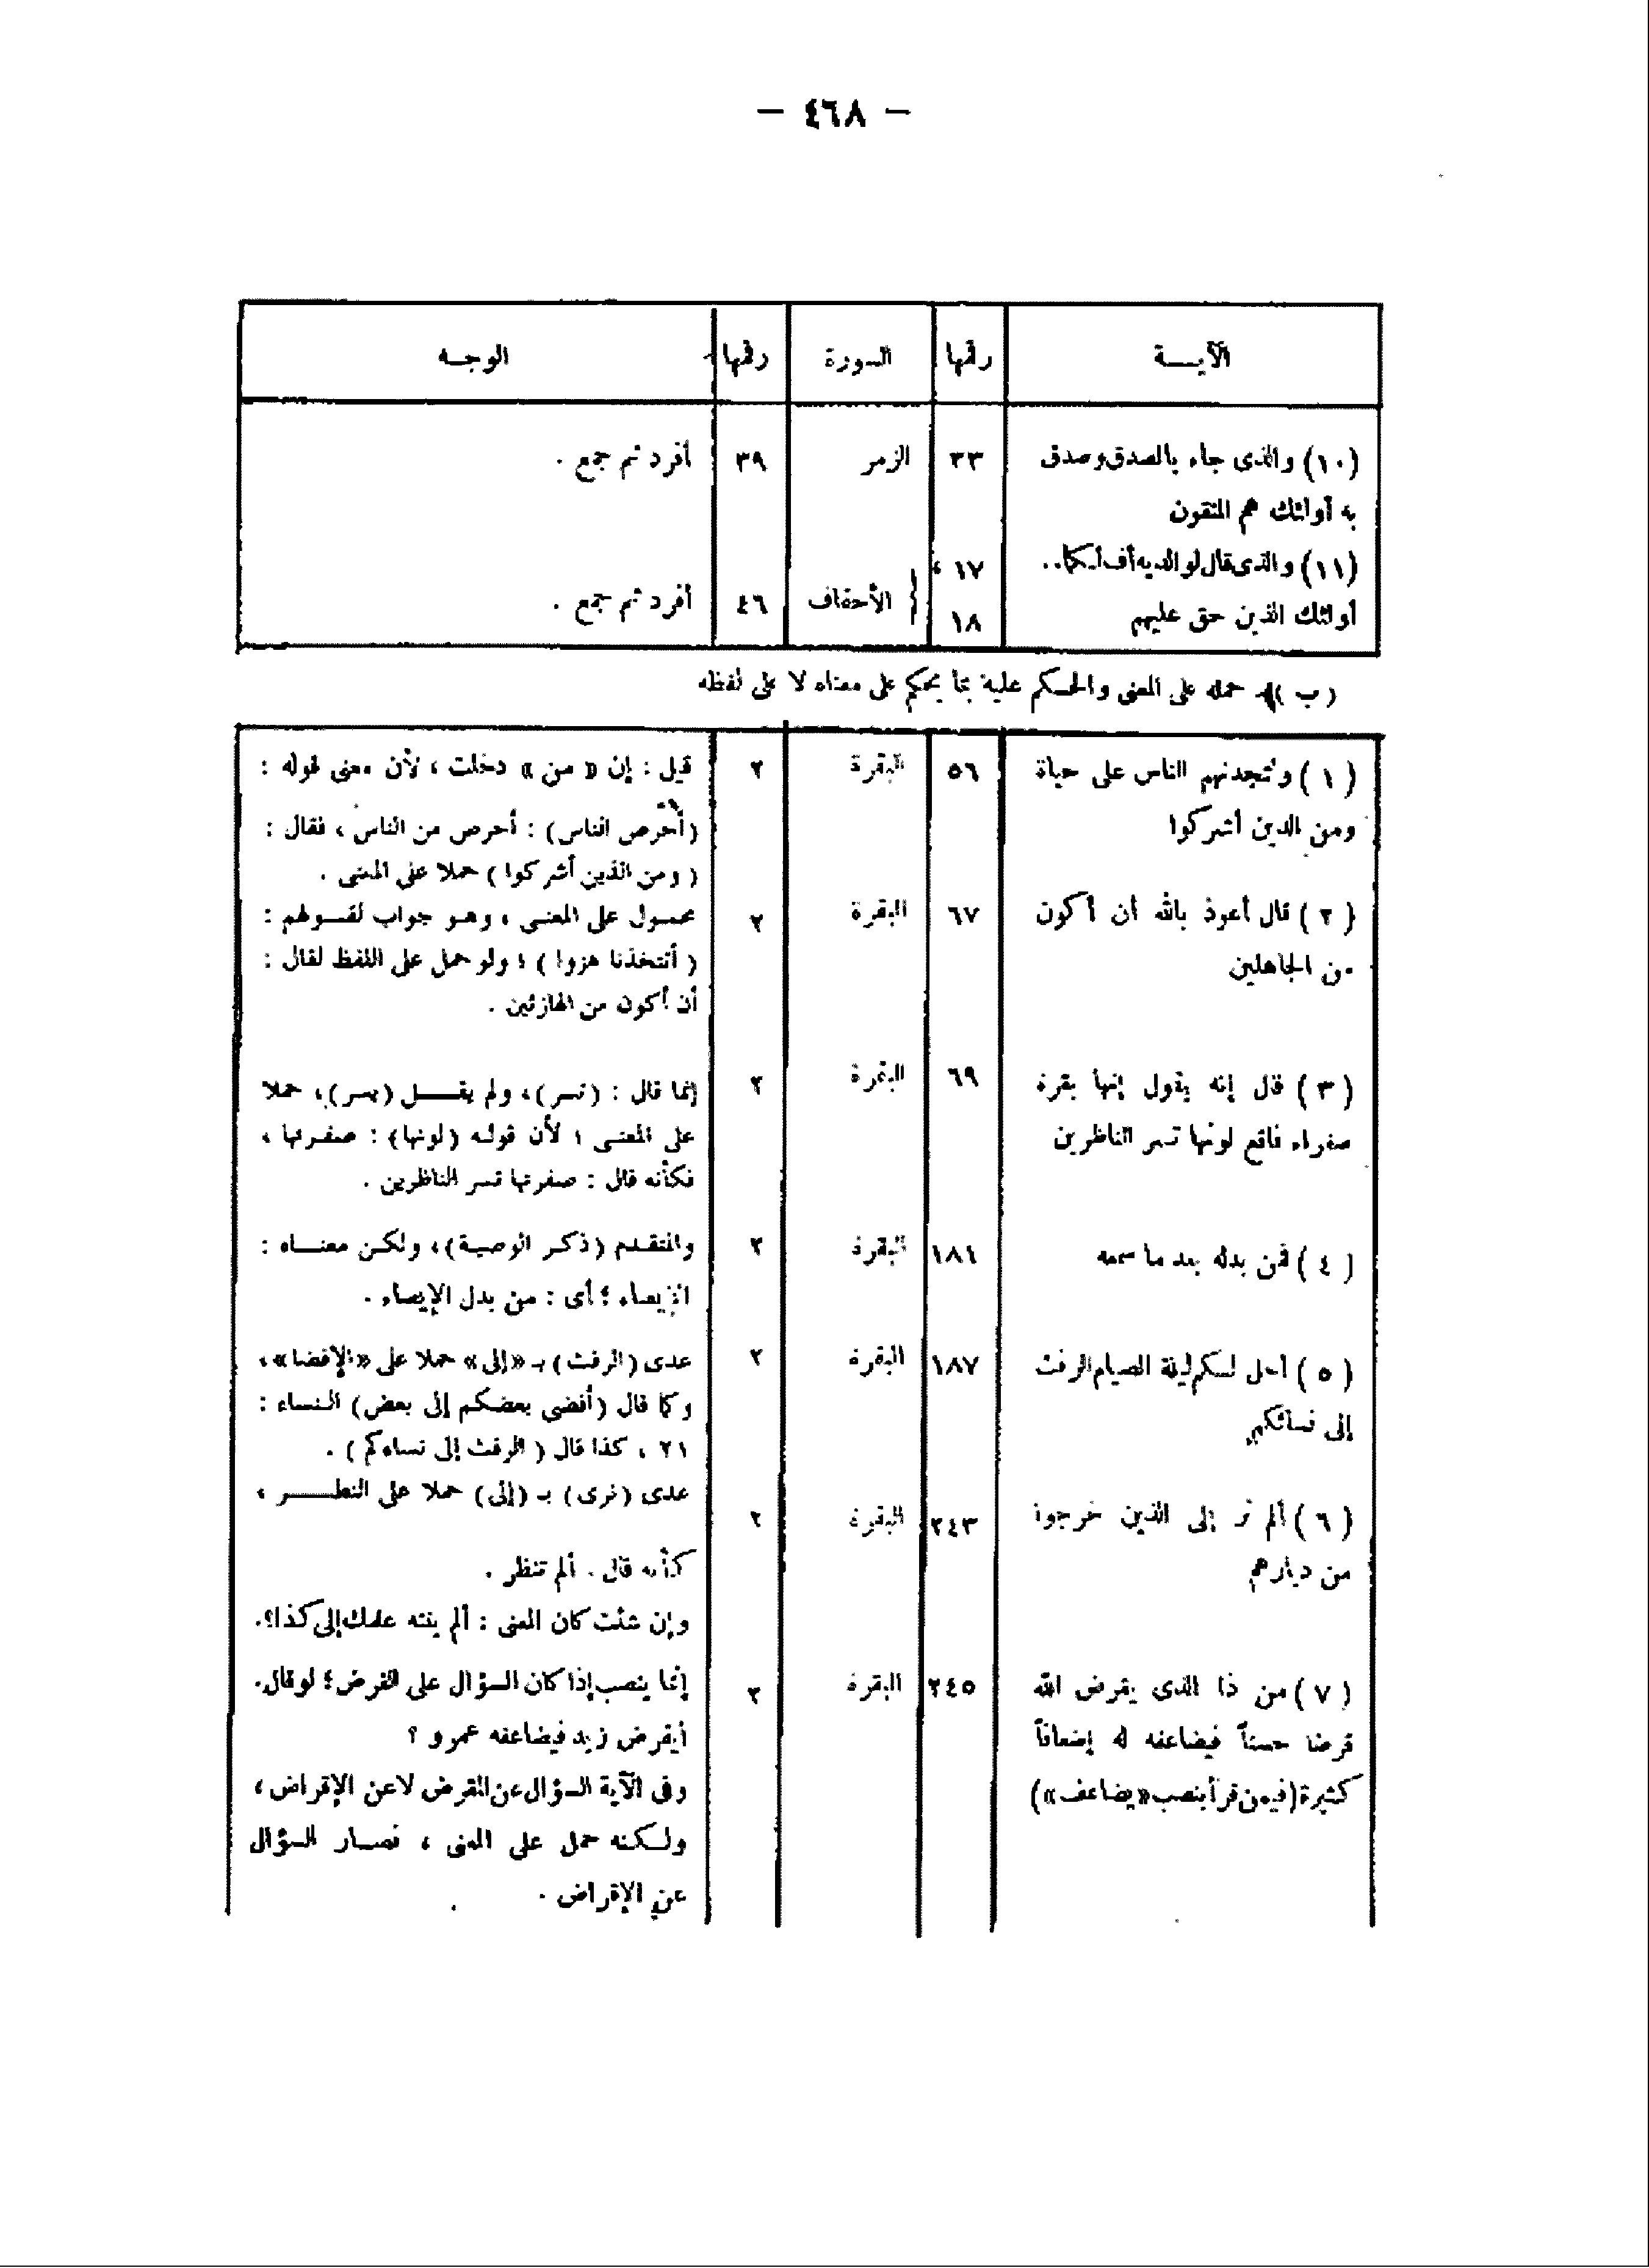 — ٤٦٨ —
الآيـــة رقمها السورة رقمها الوجـه
(١٠) والذى جاء بالصدق وصدق ٣٣ الزمر ٣٩ أفرد ثم جمع .
به أولئك هم المتقون
(١١) والذى قال لوالديه أف لكما.. ١٧ ،
الأحقاف ٤٦ أفرد ثم جمع .
أولئك الذين حق عليهم ١٨
( ب ) حمله على المعنى والحكم عليه بما يحكم على معناه لا على لفظه
( ١ ) ولتجدنهم الناس على حياة ٥٦ البقرة ٢ قيل : إن « من » دخلت ، لأن معنى قوله :
ومن الذين أشركوا (أحرص الناس) : أحرص من الناس ، فقال :
( ومن الذين أشركوا ) حملا على المعنى .
( ٢ ) قال أعوذ بالله أن أكون ٦٧ البقرة ٢ محمـول على المعنـى ، وهـو جواب لقـولهم :
من الجاهلين ( أتتخذنا هزوا ) ؛ ولو حمل على اللفظ لقال :
أن أكون من الهازئين .
( ٣ ) قال إنه يقول إنها بقرة ٦٩ البقرة ٢ إنما قال : (تسر)، ولم يقـــل (يسر)، حملا
صفراء فاقع لونها تسر الناظرين على المعنـى ؛ لأن قولـه (لونها) : صفـرتها ،
فكأنه قال : صفرتها تسر الناظرين .
( ٤ ) فمن بدله بعد ما سمعه ١٨١ البقرة ٢ والمتقـدم (ذكـر الوصيـة)، ولكـن معنـــاه :
الإيصاء ؛ أى : من بدل الإيصاء .
( ٥ ) أحل لـكم ليلة الصيام الرفث ١٨٧ البقرة ٢ عدى (الرفث) بـ «إلى» حملا على «الإفضا»،
إلى نسائكم وكما قال (أفضى بعضكم إلى بعض) النساء :
٢١ ، كذا قال ( الرفث إلى نساءكم ) .
( ٦ ) ألم تر إلى الذين خرجوا ٢٤٣ البقرة ٢ عدى (ترى) بـ (إلى) حملا على النظـــر ،
من ديارهم كأنه قال . ألم تنظر .
وإن شئت كان المعنى : ألم ينته علمك إلى كذا؟.
( ٧ ) من ذا الذى يقرض الله ٢٤٥ البقرة ٢ إنما ينصب إذا كان السؤال على القرض؛ لو قال.
قرضا حسناً فيضاعفه له إضعافاً أيقرض زيد فيضاعفه عمرو ؟
كثيرة (فيمن قرأ بنصب «يضاعف») وفى الآية السؤال عن المقرض لا عن الإقراض ،
ولـكنه حمل على المعنى ، فصـار السؤال
عن الإقراض .